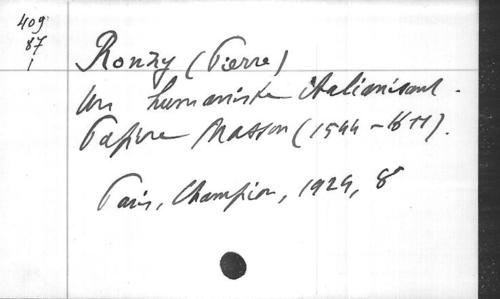 409
87
1
Ronzy (Pierre)
Un humaniste italianisant.
Papire Masson (1544-1611).
Paris, Champion, 1924, 8°